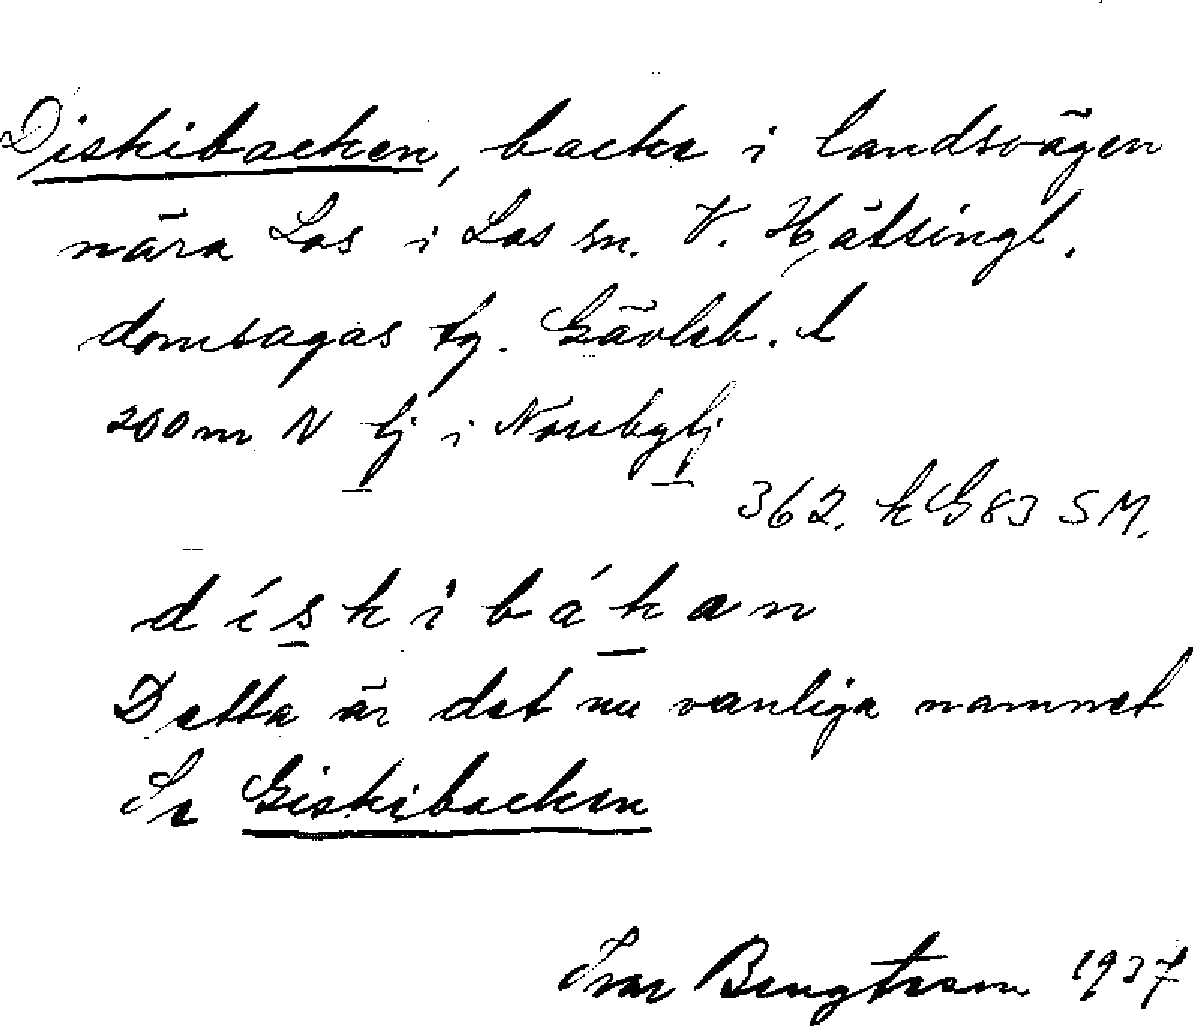 Diskibacken, backe i landsvägen
nära Los i Los sn. V. Hälsingl.
domsagas tg. Gävleb. l
200 m N lj i Norrbylj
362. h G83 SM.
díski bákan
Detta är det nu vanliga namnet
Se Giskibacken
Ivar Bengtsson 1937